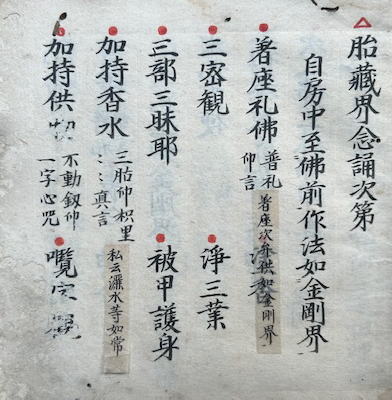 胎藏界念誦次第
自房中至佛前作法如金剛界
著座礼佛 普礼
印言
著座次弁供如金剛界
三密観 淨三業
三部三昧耶 被甲護身
加持香水 三股印枳里
〻〻真言
私云灑水等如常
加持供 不動釼印
一字心咒
囕字